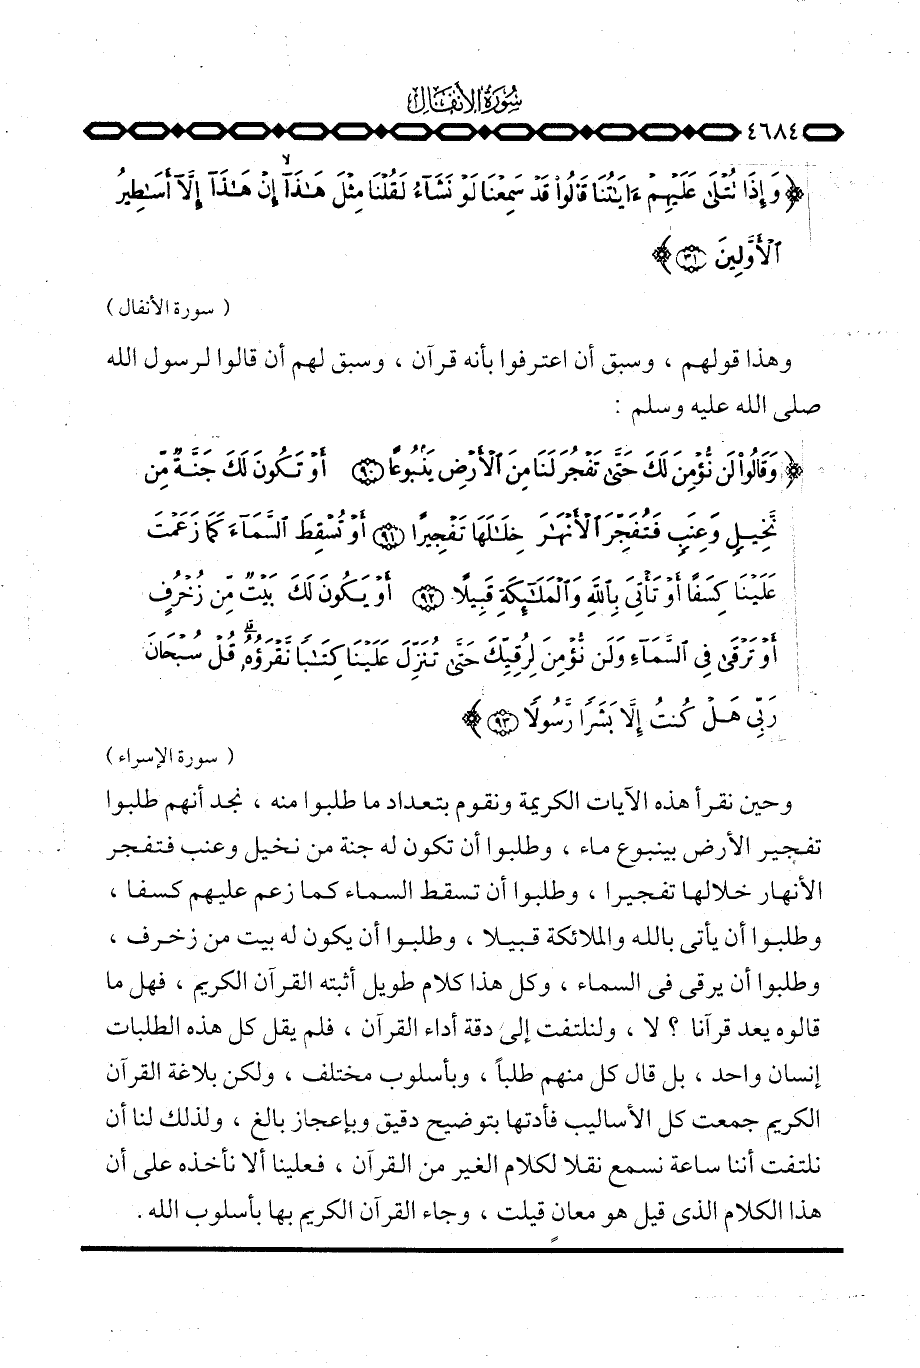 سورة الأنفال
٤٦٨٤
﴿ وَإِذَا تُتْلَىٰ عَلَيْهِمْ ءَايَٰتُنَا قَالُوا۟ قَدْ سَمِعْنَا لَوْ نَشَآءُ لَقُلْنَا مِثْلَ هَٰذَآ ۙ إِنْ هَٰذَآ إِلَّآ أَسَٰطِيرُ
ٱلْأَوَّلِينَ ٣١ ﴾
( سورة الأنفال )
وهذا قولهم ، وسبق أن اعترفوا بأنه قرآن ، وسبق لهم أن قالوا لرسول الله
صلى الله عليه وسلم :
﴿ وَقَالُوا۟ لَن نُّؤْمِنَ لَكَ حَتَّىٰ تَفْجُرَ لَنَا مِنَ ٱلْأَرْضِ يَنۢبُوعًا ٩٠ أَوْ تَكُونَ لَكَ جَنَّةٌ مِّن
نَّخِيلٍ وَعِنَبٍ فَتُفَجِّرَ ٱلْأَنْهَٰرَ خِلَٰلَهَا تَفْجِيرًا ٩١ أَوْ تُسْقِطَ ٱلسَّمَآءَ كَمَا زَعَمْتَ
عَلَيْنَا كِسَفًا أَوْ تَأْتِىَ بِٱللَّهِ وَٱلْمَلَٰٓئِكَةِ قَبِيلًا ٩٢ أَوْ يَكُونَ لَكَ بَيْتٌ مِّن زُخْرُفٍ
أَوْ تَرْقَىٰ فِى ٱلسَّمَآءِ وَلَن نُّؤْمِنَ لِرُقِيِّكَ حَتَّىٰ تُنَزِّلَ عَلَيْنَا كِتَٰبًا نَّقْرَؤُهُۥ ۗ قُلْ سُبْحَانَ
رَبِّى هَلْ كُنتُ إِلَّا بَشَرًا رَّسُولًا ٩٣ ﴾
( سورة الإسراء )
وحين نقرأ هذه الآيات الكريمة ونقوم بتعداد ما طلبوا منه ، نجد أنهم طلبوا
تفجير الأرض بينبوع ماء ، وطلبوا أن تكون له جنة من نخيل وعنب فتفجر
الأنهار خلالها تفجيرا ، وطلبوا أن تسقط السماء كما زعم عليهم كسفا ،
وطلبوا أن يأتى بالله والملائكة قبيلا ، وطلبوا أن يكون له بيت من زخرف ،
وطلبوا أن يرقى فى السماء ، وكل هذا كلام طويل أثبته القرآن الكريم ، فهل ما
قالوه يعد قرآنا ؟ لا ، ولنلتفت إلى دقة أداء القرآن ، فلم يقل كل هذه الطلبات
إنسان واحد ، بل قال كل منهم طلباً ، وبأسلوب مختلف ، ولكن بلاغة القرآن
الكريم جمعت كل الأساليب فأدتها بتوضيح دقيق وبإعجاز بالغ ، ولذلك لنا أن
نلتفت أننا ساعة نسمع نقلا لكلام الغير من القرآن ، فعلينا ألا نأخذه على أن
هذا الكلام الذى قيل هو معان قيلت ، وجاء القرآن الكريم بها بأسلوب الله .